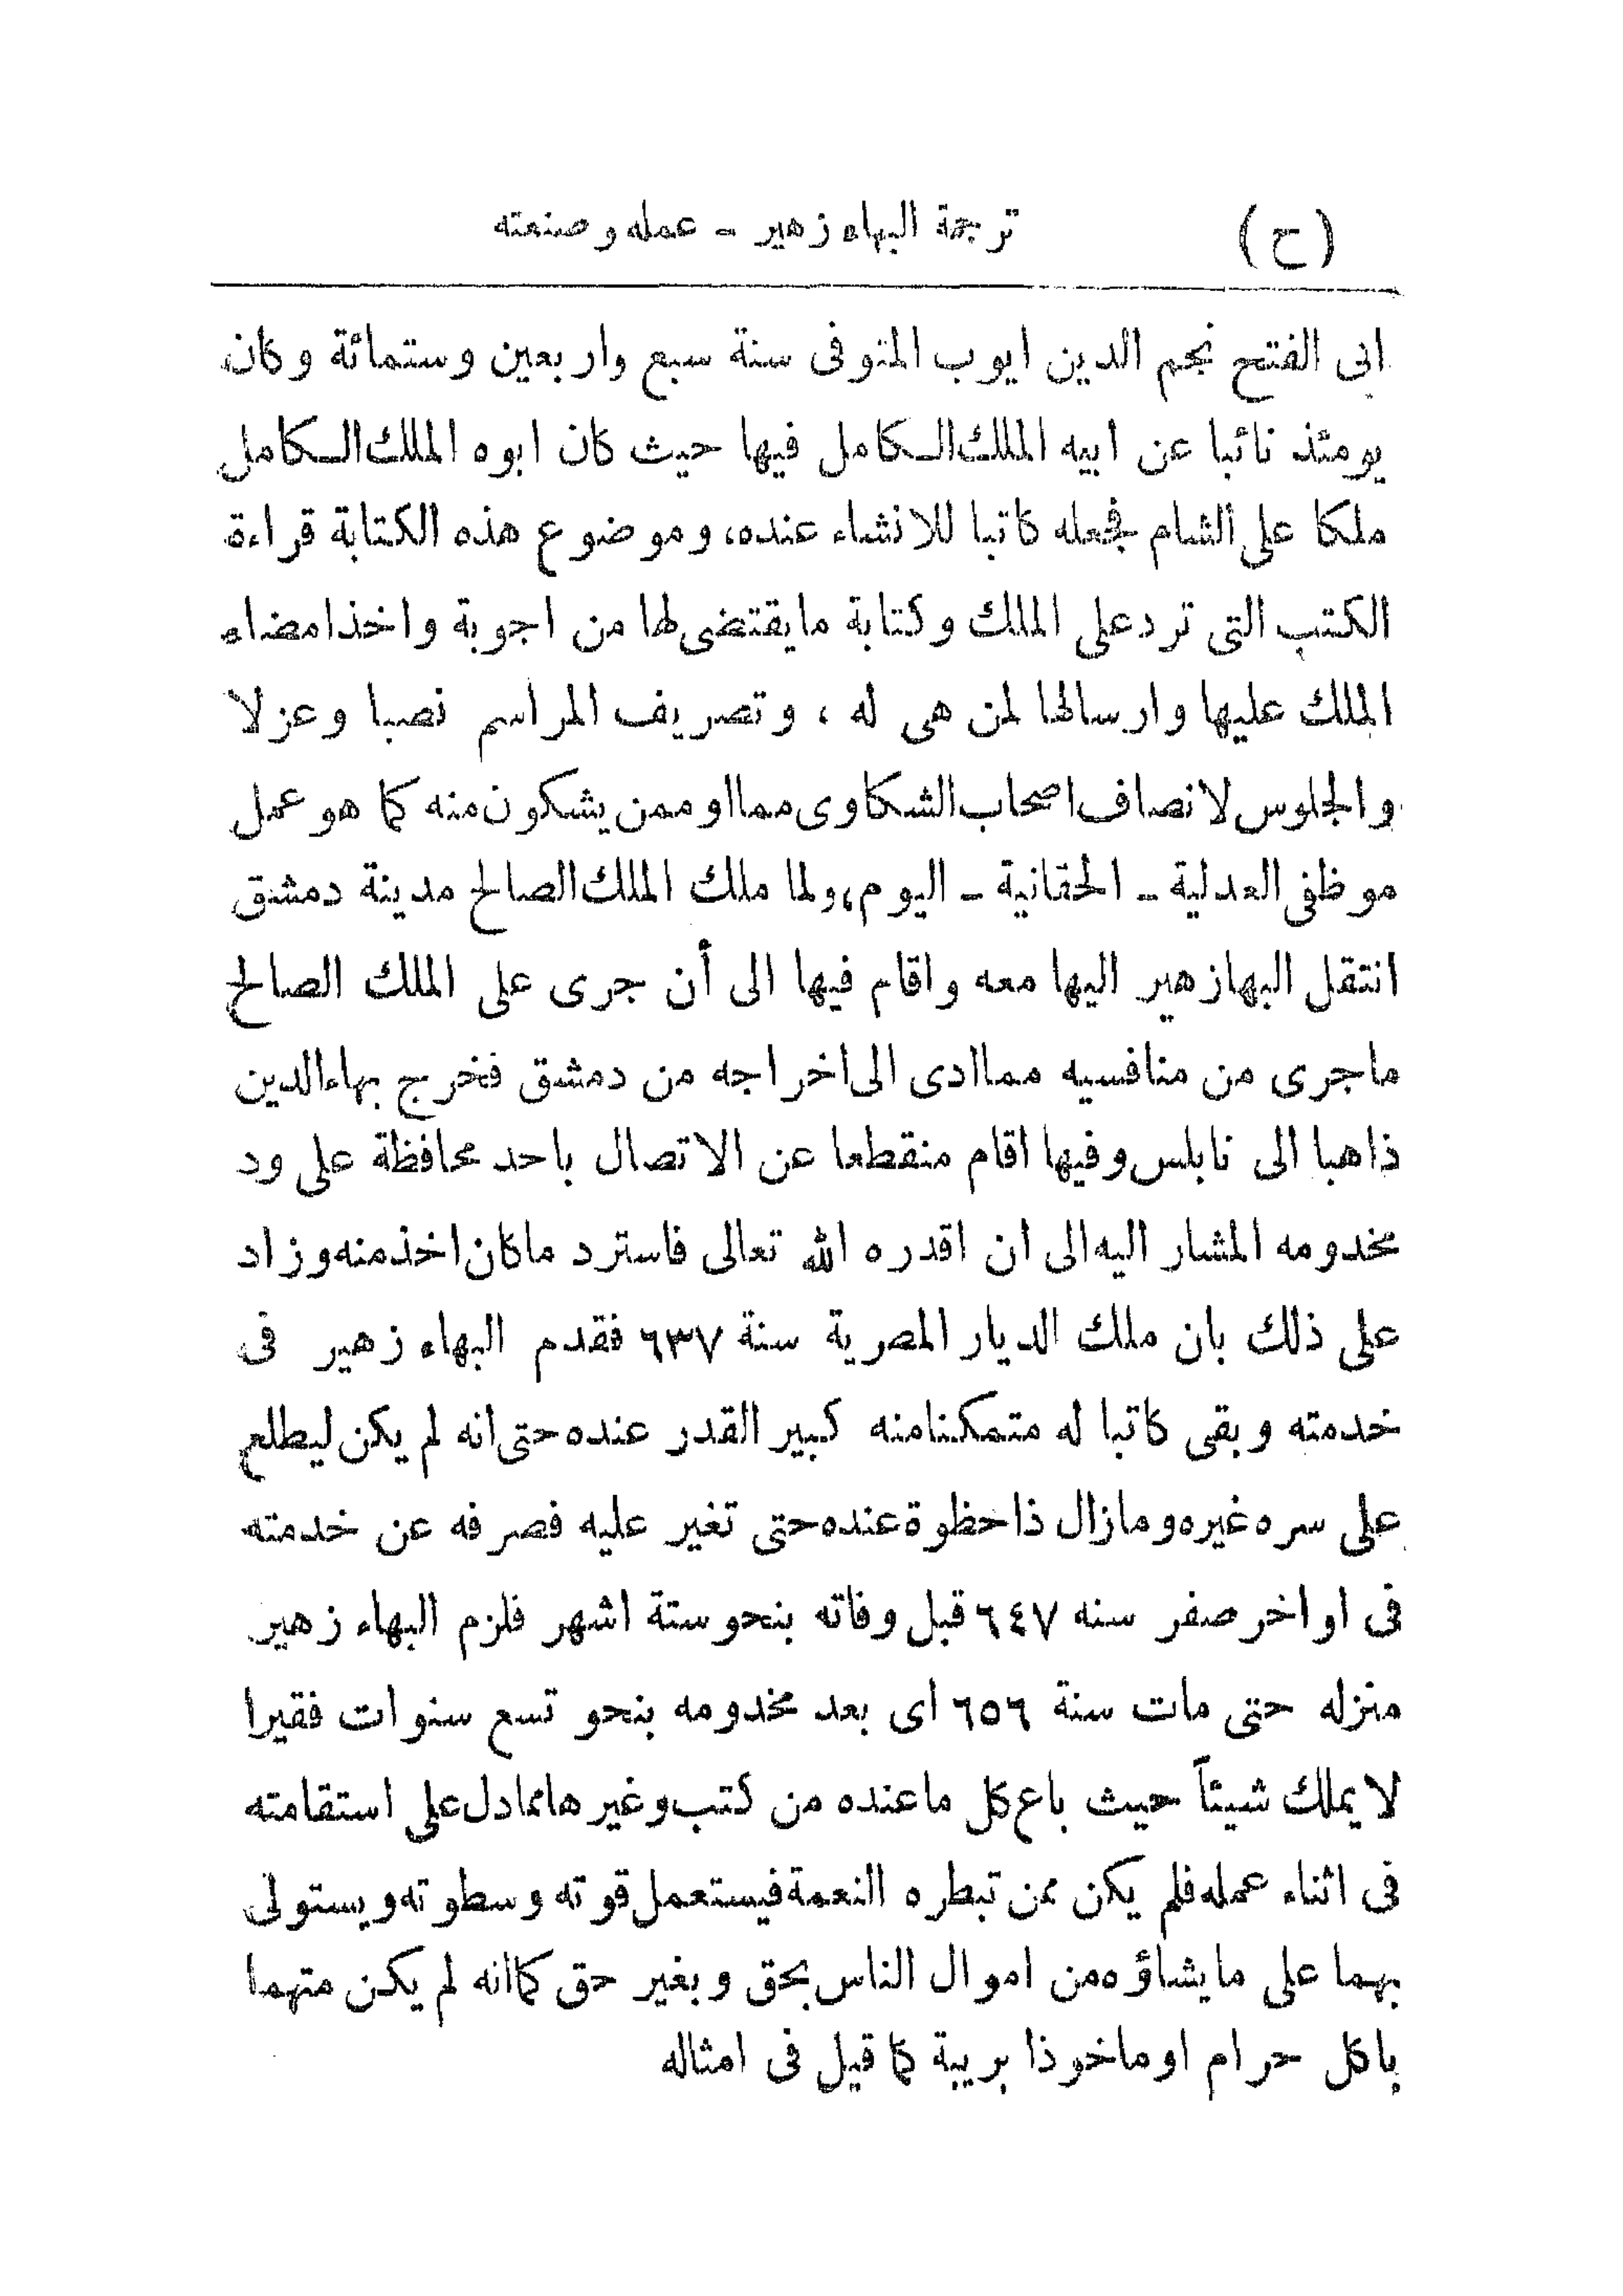 (ح) ترجمة البهاء زهير - عمله وصنعته
ابى الفتح نجم الدين ايوب المتوفى سنة سبع واربعين وستمائة وكان
يومئذ نائبا عن ابيه الملك الكامل فيها حيث كان ابوه الملك الكامل
ملكا على الشام فجعله كاتبا للانشاء عنده، وموضوع هذه الكتابة قراءة
الكتب التى ترد على الملك وكتابة ما يقتضى لها من اجوبة واخذ امضاء
الملك عليها وارسالها لمن هى له ، وتصريف المراسم نصبا وعزلا
والجلوس لانصاف اصحاب الشكاوى مما او ممن يشكون منه كما هو عمل
موظفى العدلية - الحقانية - اليوم، ولما ملك الملك الصالح مدينة دمشق
انتقل البها زهير اليها معه واقام فيها الى أن جرى على الملك الصالح
ما جرى من منافسيه مما ادى الى اخراجه من دمشق فخرج بهاء الدين
ذاهبا الى نابلس وفيها اقام منقطعا عن الاتصال باحد محافظة على ود
مخدومه المشار اليه الى ان اقدره الله تعالى فاسترد ما كان اخذ منه وزاد
على ذلك بان ملك الديار المصرية سنة ٦٣٧ فقدم البهاء زهير فى
خدمته وبقى كاتبا له متمكنا منه كبير القدر عنده حتى انه لم يكن ليطلع
على سره غيره وما زال ذا حظوة عنده حتى تغير عليه فصرفه عن خدمته
فى اواخر صفر سنه ٦٤٧ قبل وفاته بنحو ستة اشهر فلزم البهاء زهير
منزله حتى مات سنة ٦٥٦ اى بعد مخدومه بنحو تسع سنوات فقيرا
لا يملك شيئاً حيث باع كل ما عنده من كتب وغيرها مما دل على استقامته
فى اثناء عمله فلم يكن ممن تبطره النعمة فيستعمل قوته وسطوته ويستولى
بهما على ما يشاؤه من اموال الناس بحق وبغير حق كما انه لم يكن متهما
باكل حرام او ماخوذا بريبة كما قيل فى امثاله